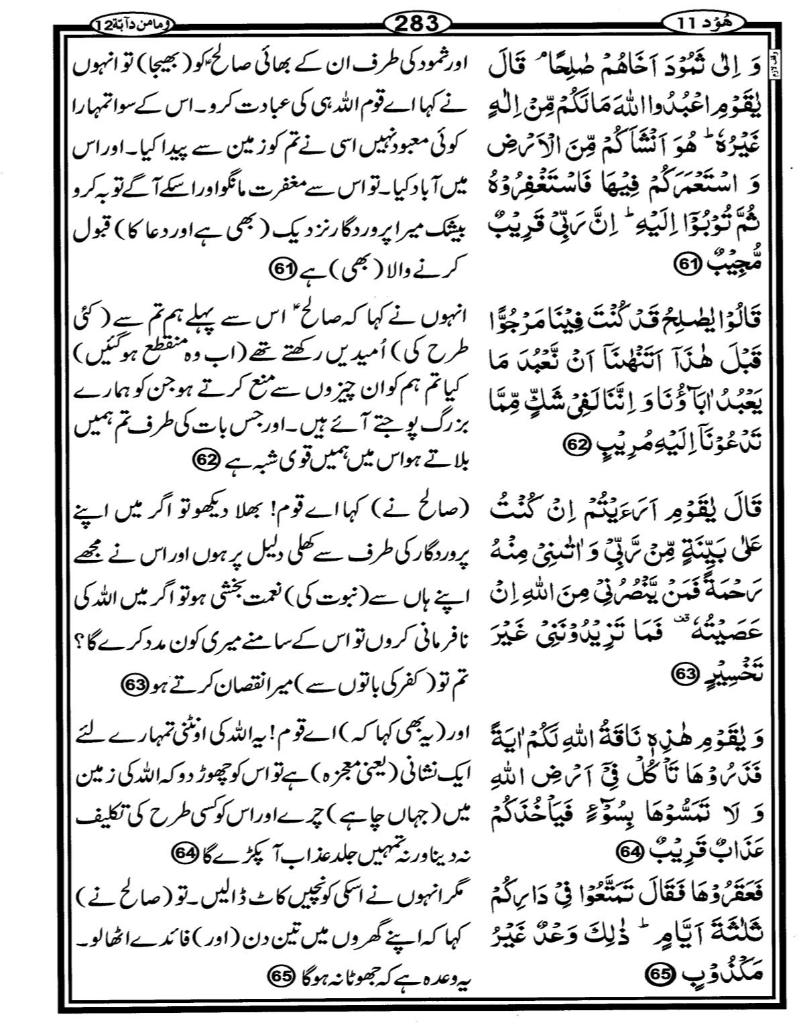 هُوْد 11
283
وَمَا مِنْ دَآبَّة 12
وقف لازم
وَ اِلٰى ثَمُوْدَ اَخَاهُمْ صٰلِحًا ۘ قَالَ
يٰقَوْمِ اعْبُدُوا اللّٰهَ مَا لَكُمْ مِّنْ اِلٰهٍ
غَيْرُهٗ ؕ هُوَ اَنْشَاَكُمْ مِّنَ الْاَرْضِ
وَ اسْتَعْمَرَكُمْ فِيْهَا فَاسْتَغْفِرُوْهُ
ثُمَّ تُوْبُوْۤا اِلَيْهِ ؕ اِنَّ رَبِّيْ قَرِيْبٌ
مُّجِيْبٌ 61
اور ثمود کی طرف ان کے بھائی صالحؑ کو (بھیجا) تو انہوں
نے کہا اے قوم اللہ ہی کی عبادت کرو۔ اس کے سوا تمہارا
کوئی معبود نہیں اسی نے تم کو زمین سے پیدا کیا۔ اور اس
میں آباد کیا۔ تو اس سے مغفرت مانگو اور اسکے آگے توبہ کرو
بیشک میرا پروردگار نزدیک (بھی ہے اور دعا کا) قبول
کرنے والا (بھی) ہے 61
قَالُوْا يٰصٰلِحُ قَدْ كُنْتَ فِيْنَا مَرْجُوًّا
قَبْلَ هٰذَاۤ اَتَنْهٰنَاۤ اَنْ نَّعْبُدَ مَا
يَعْبُدُ اٰبَآؤُنَا وَ اِنَّنَا لَفِيْ شَكٍّ مِّمَّا
تَدْعُوْنَاۤ اِلَيْهِ مُرِيْبٍ 62
انہوں نے کہا کہ صالحؑ اس سے پہلے ہم تم سے (کئی
طرح کی) اُمیدیں رکھتے تھے (اب وہ منقطع ہوگئیں)
کیا تم ہم کو ان چیزوں سے منع کرتے ہو جن کو ہمارے
بزرگ پوجتے آئے ہیں۔ اور جس بات کی طرف تم ہمیں
بلاتے ہو اس میں ہمیں قوی شبہ ہے 62
قَالَ يٰقَوْمِ اَرَءَيْتُمْ اِنْ كُنْتُ
عَلٰى بَيِّنَةٍ مِّنْ رَّبِّيْ وَ اٰتٰىنِيْ مِنْهُ
رَحْمَةً فَمَنْ يَّنْصُرُنِيْ مِنَ اللّٰهِ اِنْ
عَصَيْتُهٗ ۫ فَمَا تَزِيْدُوْنَنِيْ غَيْرَ
تَخْسِيْرٍ 63
(صالح نے) کہا اے قوم! بھلا دیکھو تو اگر میں اپنے
پروردگار کی طرف سے کھلی دلیل پر ہوں اور اس نے مجھے
اپنے ہاں سے (نبوت کی) نعمت بخشی ہو تو اگر میں اللہ کی
نافرمانی کروں تو اس کے سامنے میری کون مدد کرے گا؟
تم تو (کفر کی باتوں سے) میرا نقصان کرتے ہو 63
وَ يٰقَوْمِ هٰذِهٖ نَاقَةُ اللّٰهِ لَكُمْ اٰيَةً
فَذَرُوْهَا تَاْكُلْ فِيْۤ اَرْضِ اللّٰهِ
وَ لَا تَمَسُّوْهَا بِسُوْٓءٍ فَيَاْخُذَكُمْ
عَذَابٌ قَرِيْبٌ 64
اور (یہ بھی کہا کہ) اے قوم! یہ اللہ کی اونٹنی تمہارے لئے
ایک نشانی (یعنی معجزہ) ہے تو اس کو چھوڑ دو کہ اللہ کی زمین
میں (جہاں چاہے) چرے اور اس کو کسی طرح کی تکلیف
نہ دینا ورنہ تمہیں جلد عذاب آ پکڑے گا 64
فَعَقَرُوْهَا فَقَالَ تَمَتَّعُوْا فِيْ دَارِكُمْ
ثَلٰثَةَ اَيَّامٍ ؕ ذٰلِكَ وَعْدٌ غَيْرُ
مَكْذُوْبٍ 65
مگر انہوں نے اسکی کونچیں کاٹ ڈالیں۔ تو (صالح نے)
کہا کہ اپنے گھروں میں تین دن (اور) فائدے اٹھا لو۔
یہ وعدہ ہے کہ جھوٹا نہ ہوگا 65